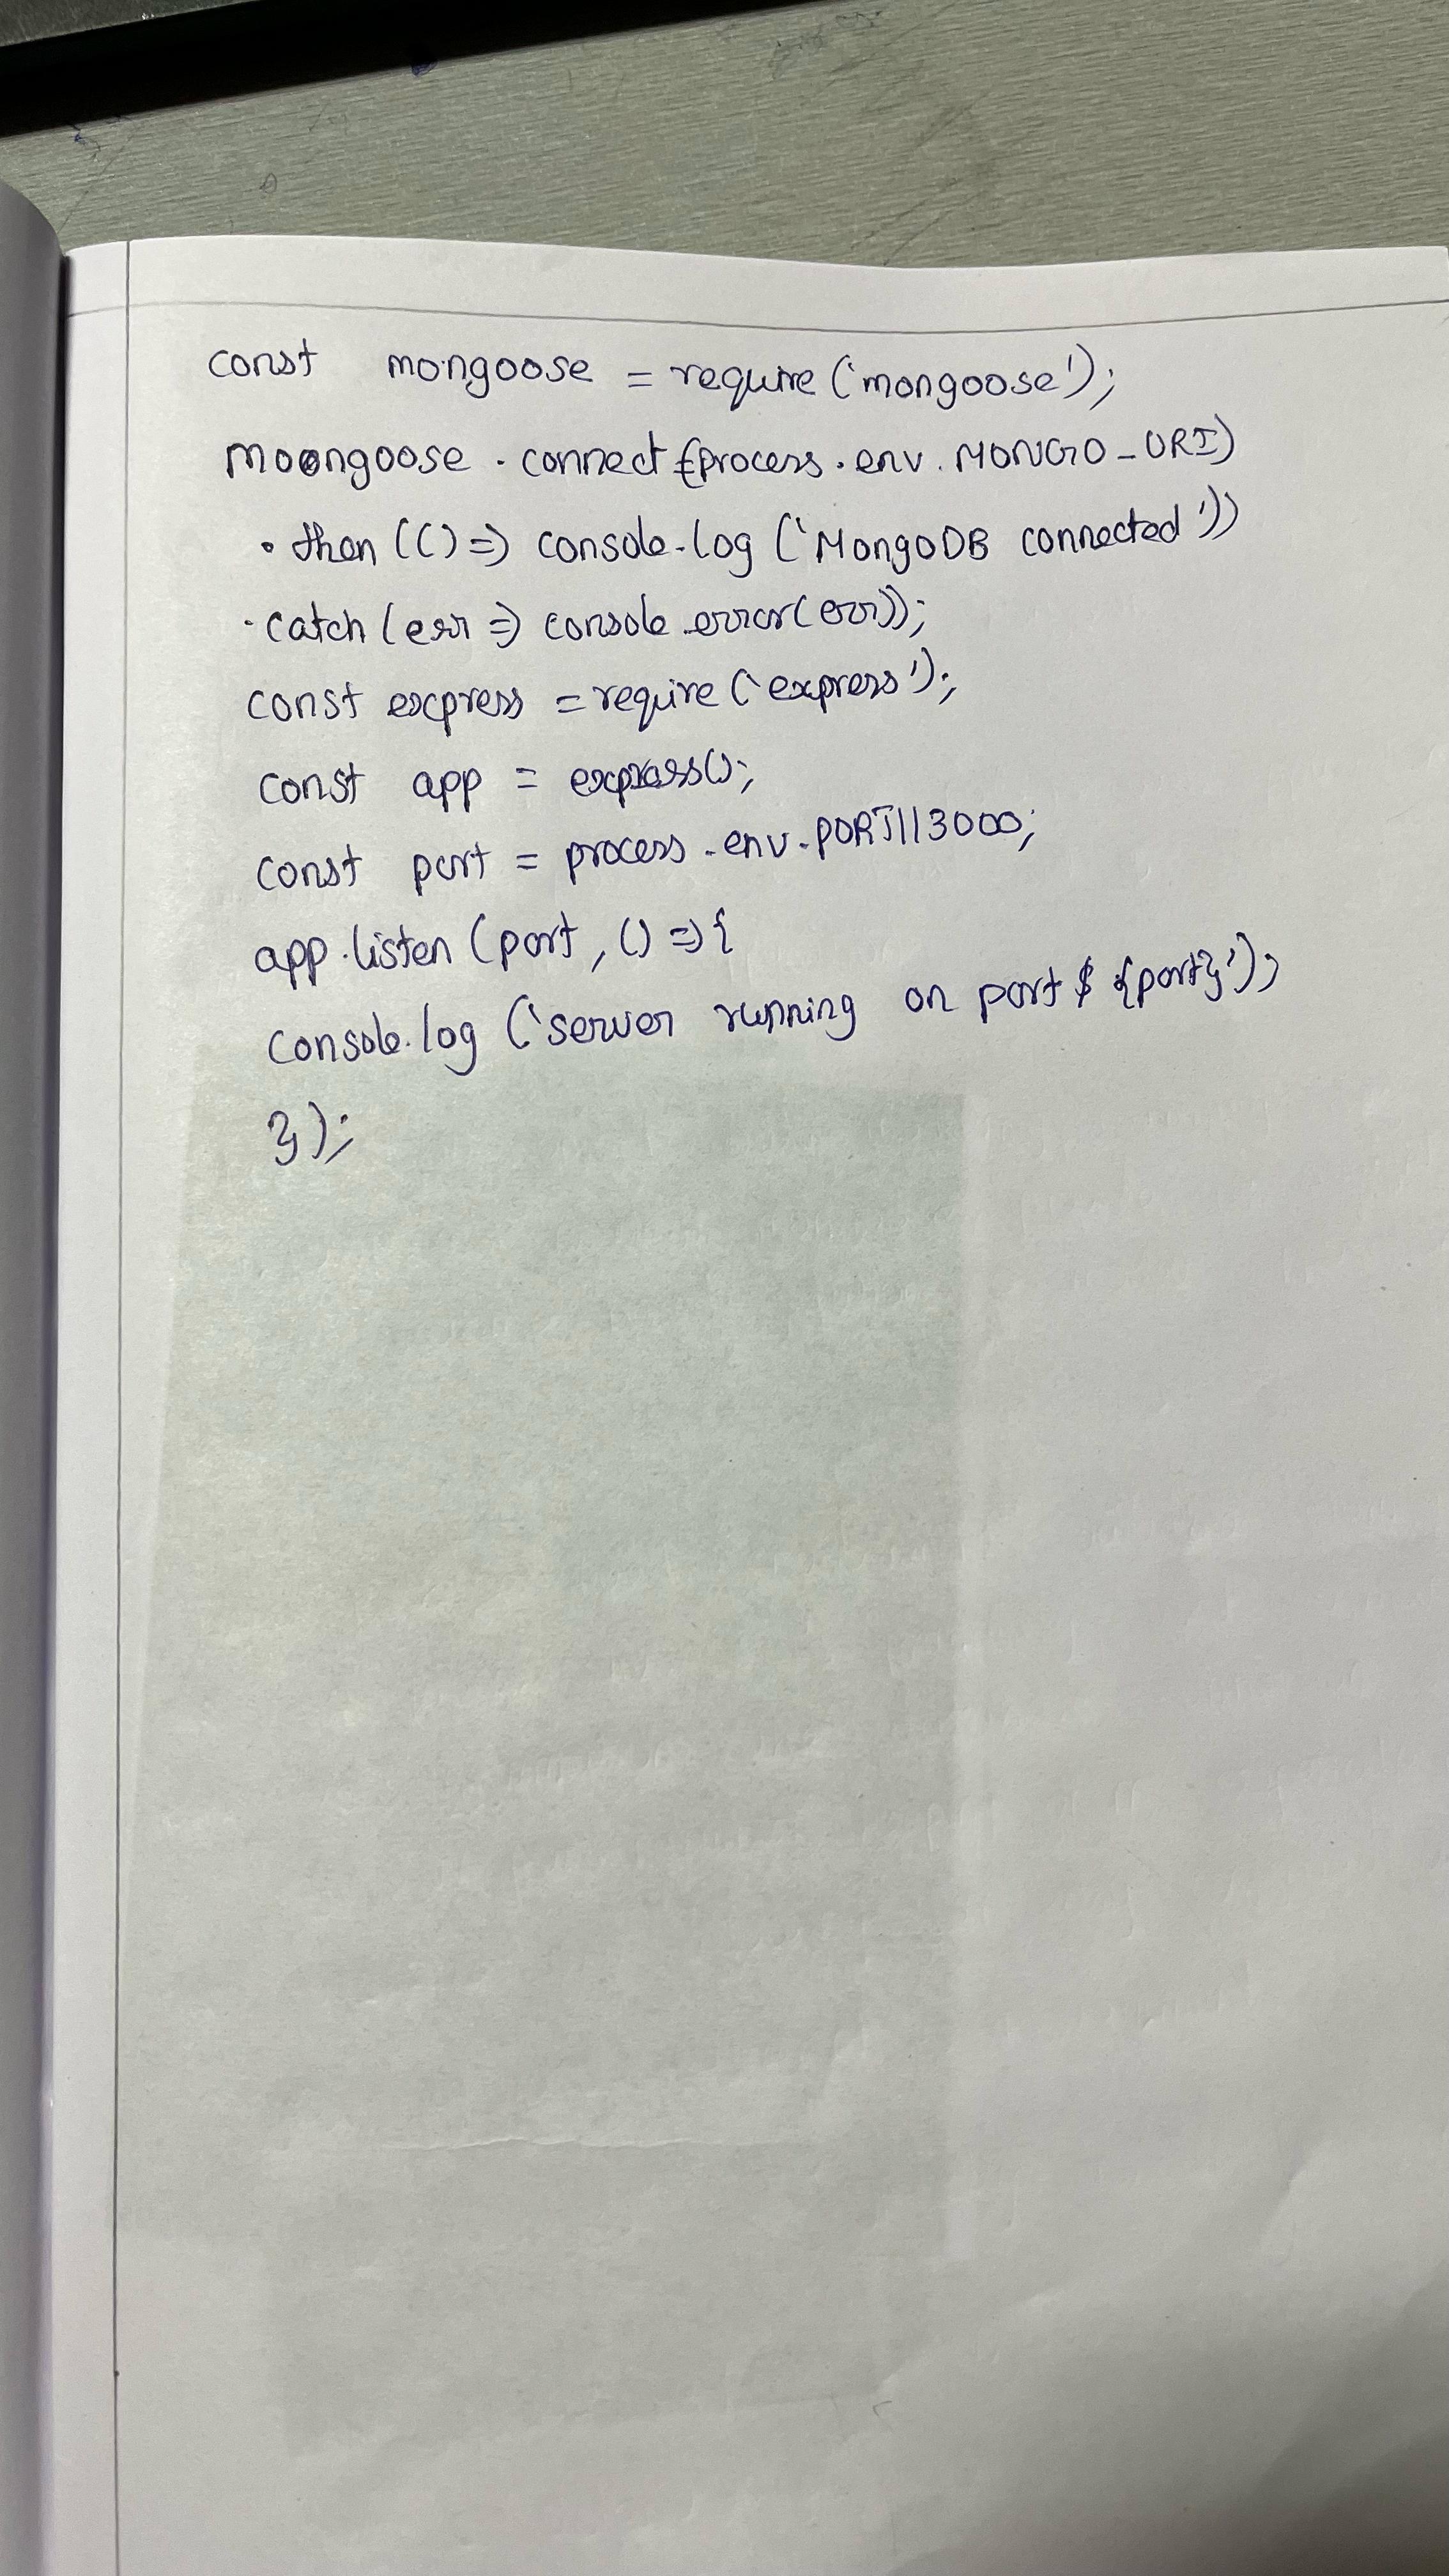 const mongoose = require('mongoose');
moongoose.connect(process.env.MONGO_URI)
.then(() => console.log('MongoDB connected'))
.catch(err => console.error(err));
const express = require('express');
const app = express();
const port = process.env.PORT||3000;
app.listen(port, () => {
console.log('server running on port ${port}');
});